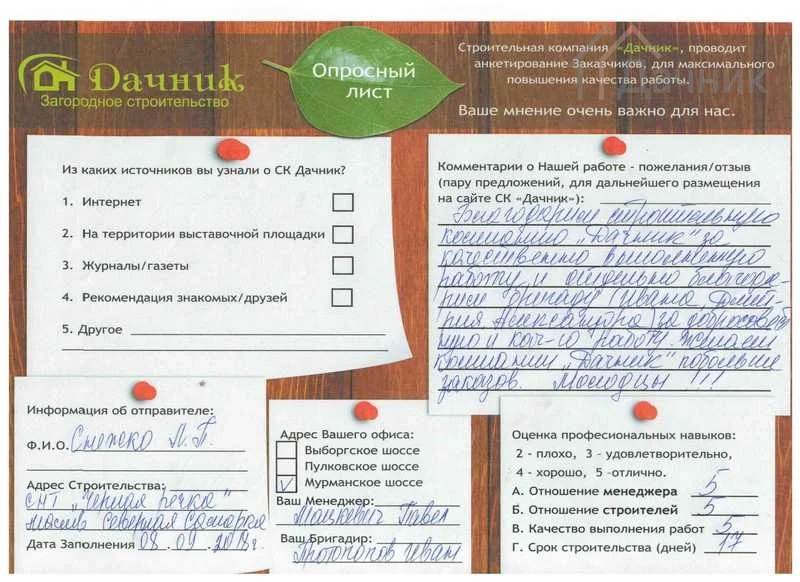 Дачник
Загородное строительство
Опросный
лист
Строительная компания «Дачник», проводит
анкетирование Заказчиков, для максимального
повышения качества работы.
Ваше мнение очень важно для нас.
Дачник
Из каких источников вы узнали о СК Дачник?
1. Интернет
2. На территории выставочной площадки
3. Журналы/газеты
4. Рекомендация знакомых/друзей
5. Другое
Комментарии о Нашей работе - пожелания/отзыв
(пару предложений, для дальнейшего размещения
на сайте СК «Дачник»):
Благодарим строительную
компанию „Дачник" за
качественно выполненную
работу и отдельно благода-
рим бригаду (Ивана, Дмит-
рия, Александра) за добросовест
ную и кач-ю работу. Желаем
компании „Дачник" побольше
заказов. Молодцы!!!
Информация об отправителе:
Ф.И.О. Снежко Л.П.
Адрес Строительства:
СНТ „Черная речка"
массив Северная Самарка
Дата Заполнения 08.09.2018г.
Адрес Вашего офиса:
Выборгское шоссе
Пулковское шоссе
V Мурманское шоссе
Ваш Менеджер:
Мацкевич Павел
Ваш Бригадир:
Протопопов Иван
Оценка професиональных навыков:
2 - плохо, 3 - удовлетворительно,
4 - хорошо, 5 -отлично.
А. Отношение менеджера 5
Б. Отношение строителей 5
В. Качество выполнения работ 5
Г. Срок строительства (дней) 17